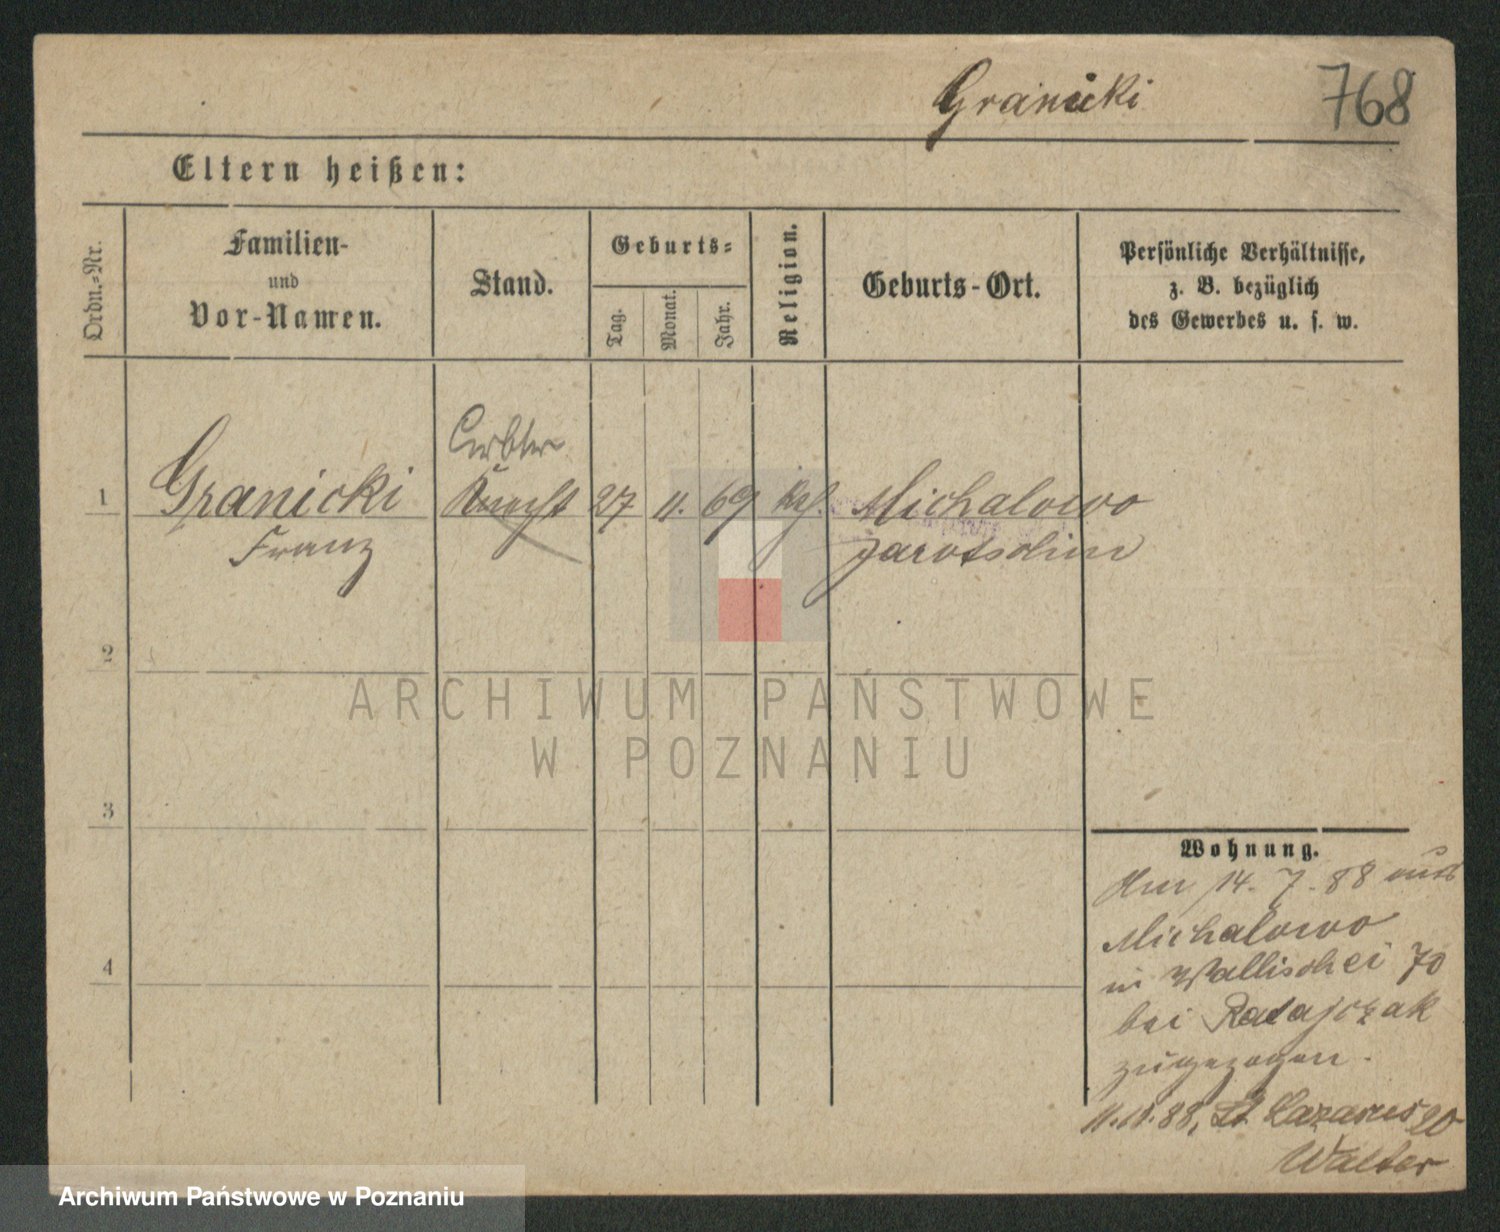 Granicki
768
Eltern heißen:
Ordn.-Nr.
Familien-
und
Vor-Namen.
Stand.
Geburts-
Tag.
Monat.
Jahr.
Religion.
Geburts-Ort.
Persönliche Verhältnisse,
z. B. bezüglich
des Gewerbes u. s. w.
1 Granicki Knecht 27 11. 69 kath. Michalowo
Franz
2
ARCHIWUM PAŃSTWOWE
W POZNANIU
3
4
Wohnung.
Am 14. 7. 88 aus
Michalowo
in Wallischei 70
bei Ratajczak
zugezogen.
11.11.88, St Lazarus 20
Walter
Archiwum Państwowe w Poznaniu